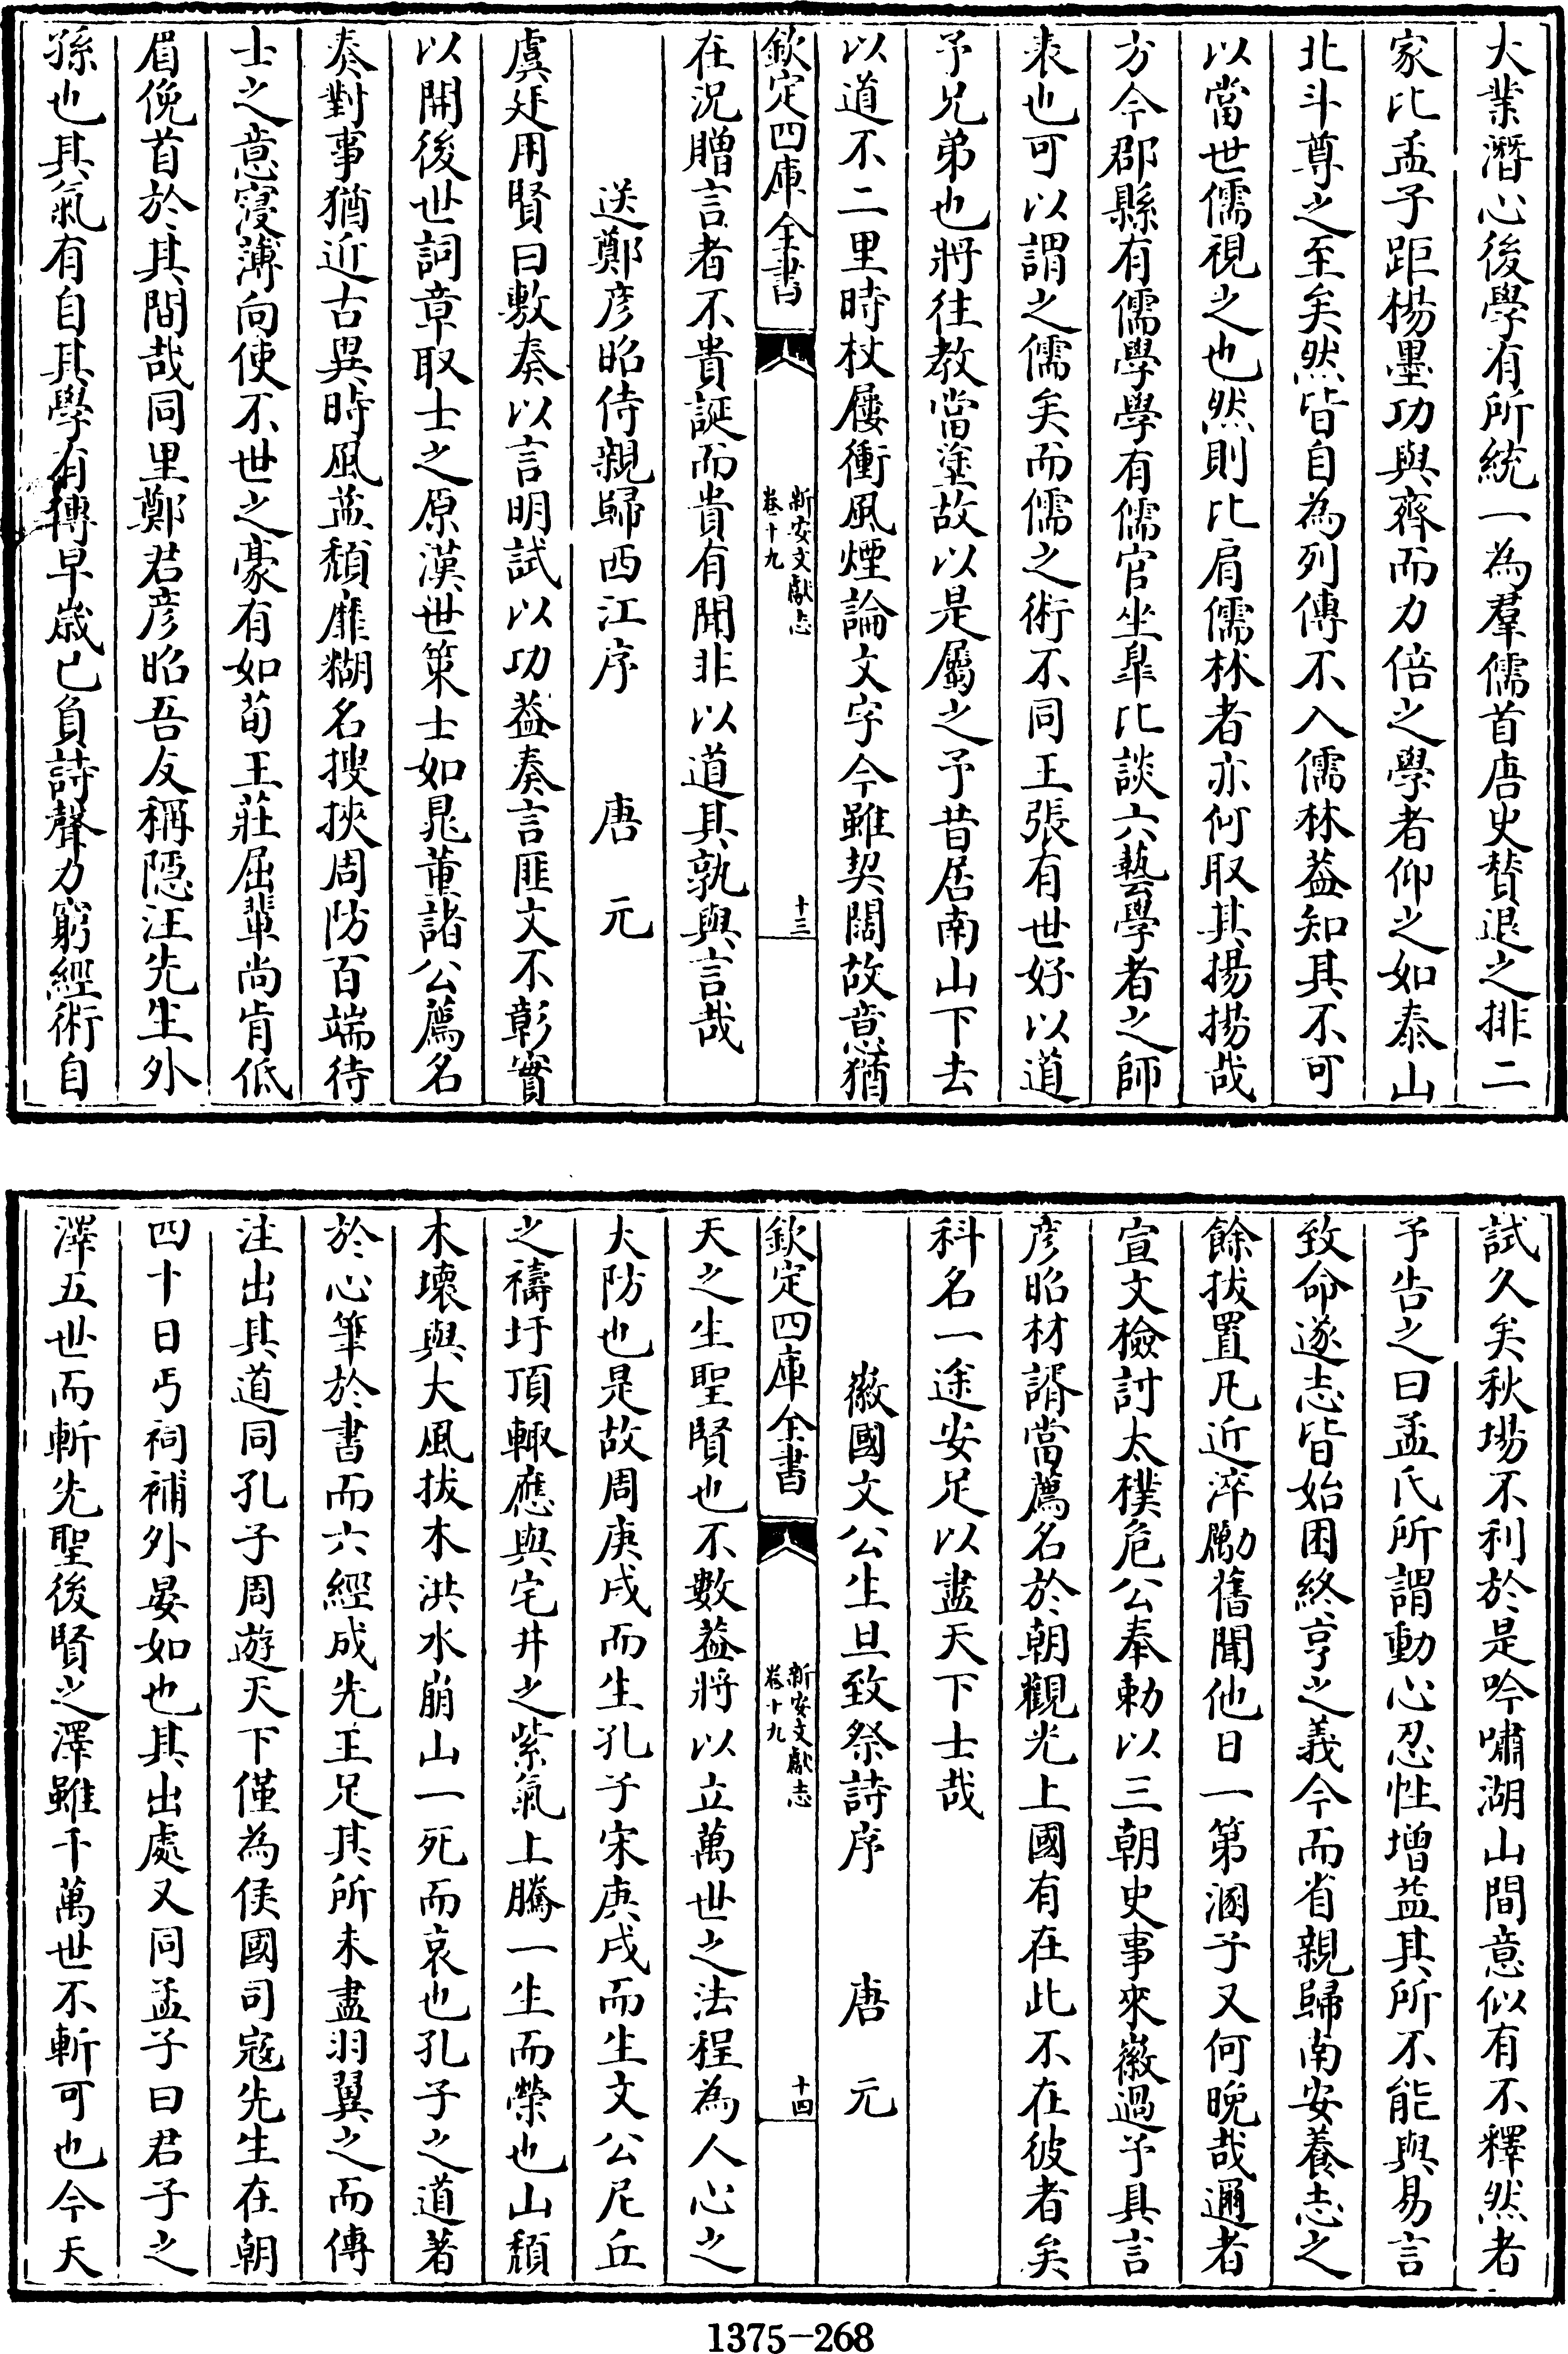 大業潛心後學有所統一為羣儒首唐史賛退之排二
家比孟子距楊墨功與齊而力倍之學者仰之如泰山
北斗尊之至矣然皆自為列傳不入儒林葢知其不可
以當世儒視之也然則比肩儒林者亦何取其揚揚哉
方今郡縣有儒學學有儒官坐臯比談六藝學者之師
表也可以謂之儒矣而儒之術不同王張有世好以道
予兄弟也將往教當塗故以是屬之予昔居南山下去
以道不二里時杖屨衝風煙論文字今雖契闊故意猶
欽定四庫全書
新安文獻志
卷十九
十三
在況贈言者不貴誕而貴有聞非以道其孰與言哉
送鄭彦昭侍親歸西江序 唐元
虞廷用賢曰敷奏以言明試以功葢奏言匪文不彰實
以開後世詞章取士之原漢世策士如晁董諸公薦名
奏對事猶近古異時風葢頽靡糊名搜挾周防百端待
士之意寖薄向使不世之豪有如荀王莊屈輩尚肯低
眉俛首於其間哉同里鄭君彦昭吾友稱隠汪先生外
孫也其氣有自其學有傳早嵗已負詩聲力窮經術自
試久矣秋場不利於是吟嘯湖山間意似有不釋然者
予告之曰孟氏所謂動心忍性增益其所不能與易言
致命遂志皆始困終亨之義今而省親歸南安養志之
餘拔置凡近淬勵舊聞他日一第溷子又何晚哉邇者
宣文檢討太樸危公奉勅以三朝史事來徽過予具言
彦昭材諝當薦名於朝觀光上國有在此不在彼者矣
科名一途安足以盡天下士哉
徽國文公生旦致祭詩序 唐元
欽定四庫全書
新安文獻志
卷十九
十四
天之生聖賢也不數葢將以立萬世之法程為人心之
大防也是故周庚戌而生孔子宋庚戌而生文公尼丘
之禱圩頂輙應與宅井之紫氣上騰一生而榮也山頽
木壞與大風拔木洪水崩山一死而哀也孔子之道著
於心筆於書而六經成先王足其所未盡羽翼之而傳
注出其道同孔子周遊天下僅為侯國司寇先生在朝
四十日丐祠補外晏如也其出處又同孟子曰君子之
澤五世而斬先聖後賢之澤雖千萬世不斬可也今天
1375-268